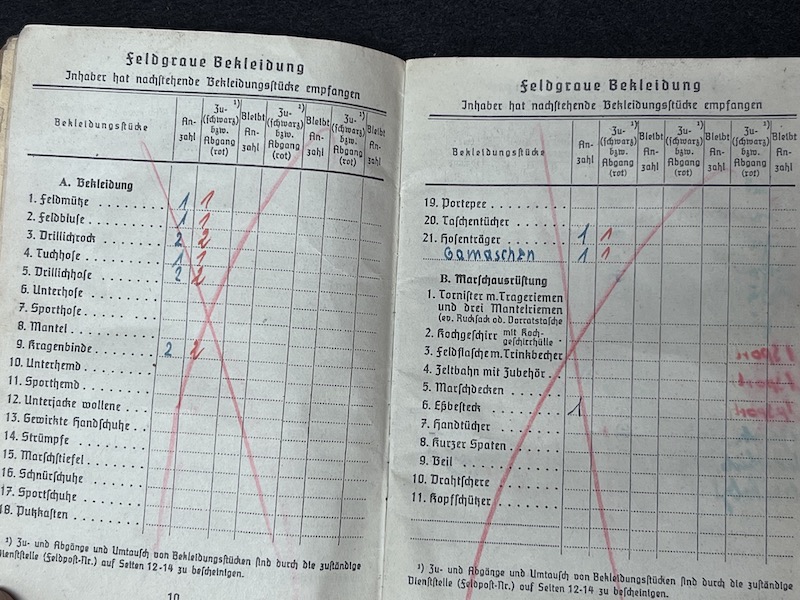 Feldgraue Bekleidung
Inhaber hat nachstehende Bekleidungsstücke empfangen
Bekleidungsstücke | An-zahl | Zu-¹) (schwarz) bzw. Abgang (rot) | Bleibt An-zahl | Zu-¹) (schwarz) bzw. Abgang (rot) | Bleibt An-zahl | Zu-¹) (schwarz) bzw. Abgang (rot) | Bleibt An-zahl
A. Bekleidung
1. Feldmütze 1 1
2. Feldbluse 1 1
3. Drillichrock 2 2
4. Tuchhose 1 1
5. Drillichhose 2 2
6. Unterhose
7. Sporthose
8. Mantel
9. Kragenbinde 2 2
10. Unterhemd
11. Sporthemd
12. Unterjacke wollene
13. Gewirkte Handschuhe
14. Strümpfe
15. Marschstiefel
16. Schnürschuhe
17. Sportschuhe
18. Putzkasten
¹) Zu- und Abgänge und Umtausch von Bekleidungsstücken sind durch die zuständige
Dienststelle (Feldpost-Nr.) auf Seiten 12-14 zu bescheinigen.
10
Feldgraue Bekleidung
Inhaber hat nachstehende Bekleidungsstücke empfangen
Bekleidungsstücke | An-zahl | Zu-¹) (schwarz) bzw. Abgang (rot) | Bleibt An-zahl | Zu-¹) (schwarz) bzw. Abgang (rot) | Bleibt An-zahl | Zu-¹) (schwarz) bzw. Abgang (rot) | Bleibt An-zahl
19. Portepee
20. Taschentücher
21. Hosenträger 1 1
Gamaschen 1 1
B. Marschausrüstung
1. Tornister m. Trageriemen
und drei Mantelriemen
(ev. Rucksack od. Vorratstasche
2. Kochgeschirr mit Koch-
geschirrhülle
3. Feldflasche m. Trinkbecher
4. Zeltbahn mit Zubehör
5. Marschdecken
6. Eßbesteck 1
7. Handtücher
8. Kurzer Spaten
9. Beil
10. Drahtschere
11. Kopfschützer
¹) Zu- und Abgänge und Umtausch von Bekleidungsstücken sind durch die zuständige
Dienststelle (Feldpost-Nr.) auf Seiten 12-14 zu bescheinigen.